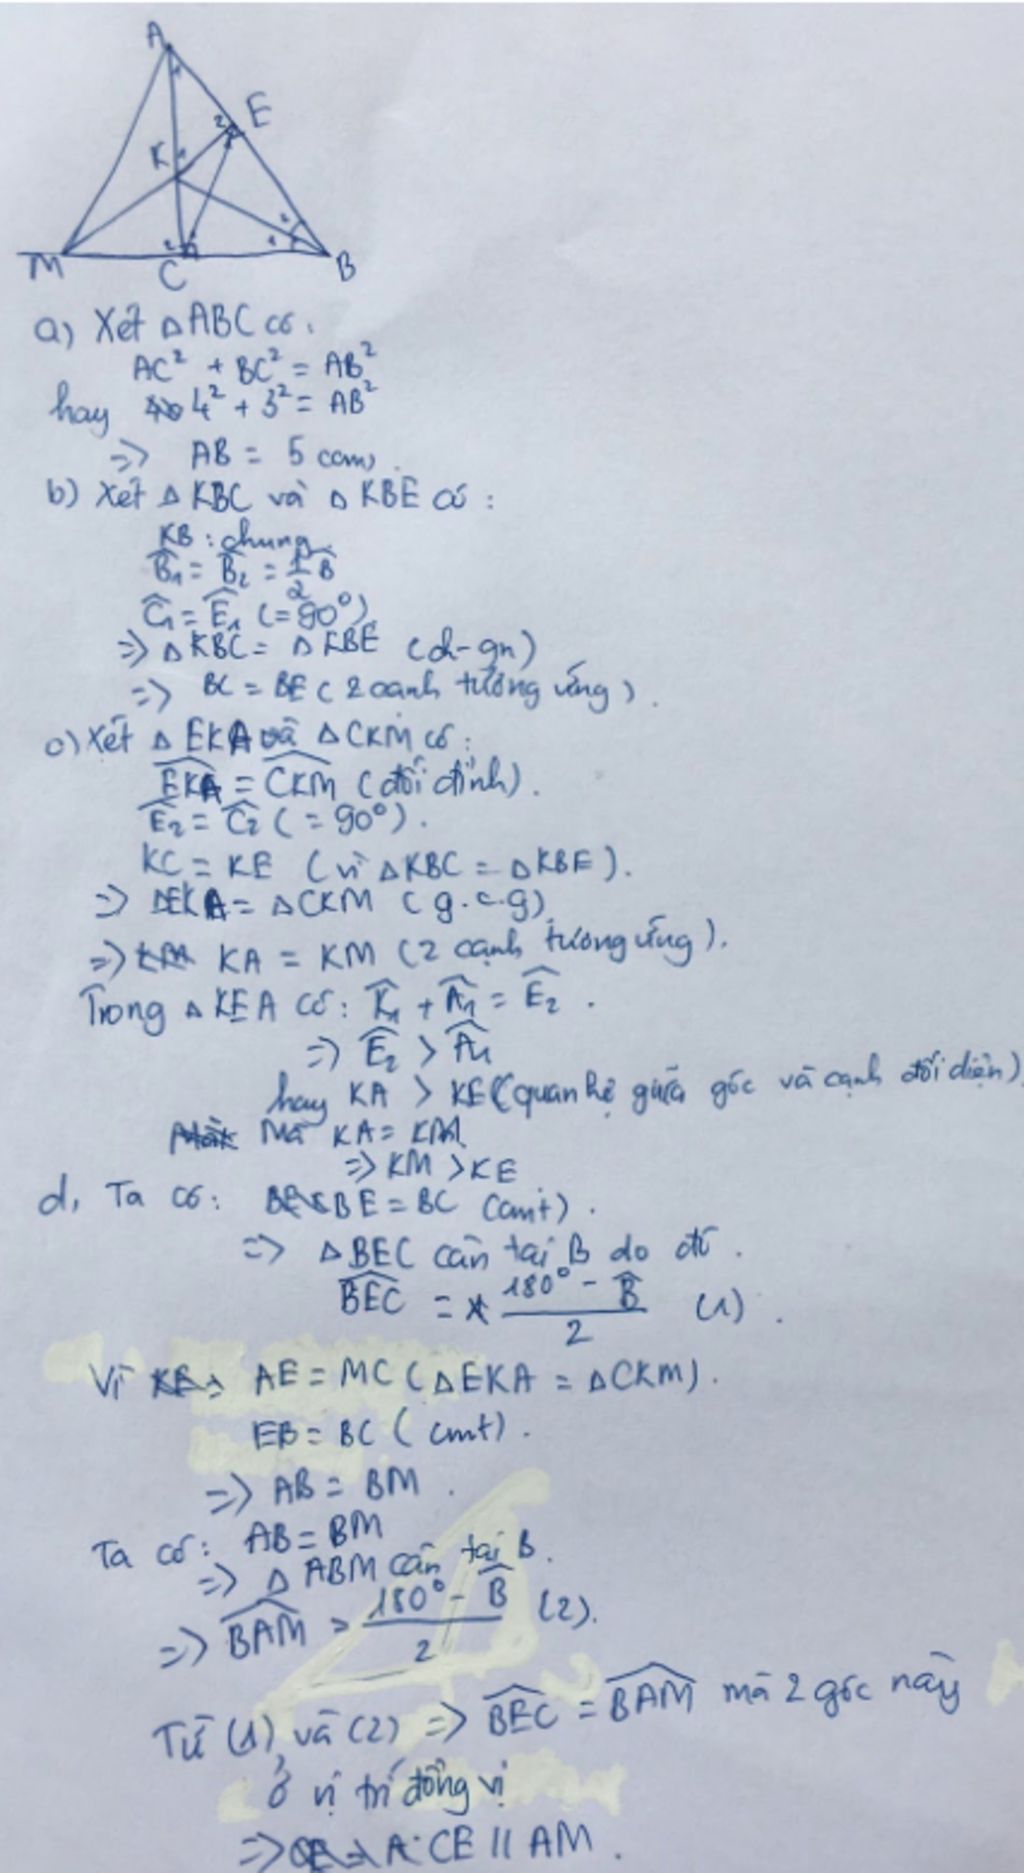 A
E
K
M
C
B
a) Xét △ABC có:
AC² + BC² = AB²
hay 4² + 3² = AB²
=> AB = 5 cm
b) Xét △KBC và △KBE có:
KB: chung
B̂₁ = B̂₂ = 1/2 B̂
Ĉ₁ = Ê₁ (= 90°)
=> △KBC = △KBE (ch-gn)
=> BC = BE (2 cạnh tương ứng).
c) Xét △EKA và △CKM có:
EKA = CKM (đối đỉnh).
Ê₂ = Ĉ₂ (= 90°).
KC = KE (vì △KBC = △KBE).
=> △EKA = △CKM (g.c.g)
=> KA = KM (2 cạnh tương ứng).
Trong △KEA có: K̂₁ + Â₁ = Ê₂.
=> Ê₂ > Â₁
hay KA > KE (quan hệ giữa góc và cạnh đối diện)
Mà KA = KM
=> KM > KE
d, Ta có: BE = BC (cmt).
=> △BEC cân tại B do đó.
BEC = (180° - B̂)/2 (1).
Vì AE = MC (△EKA = △CKM).
EB = BC (cmt).
=> AB = BM.
Ta có: AB = BM
=> △ABM cân tại B.
=> BAM = (180° - B̂)/2 (2).
Từ (1) và (2) => BEC = BAM mà 2 góc này
ở vị trí đồng vị
=> CE // AM.